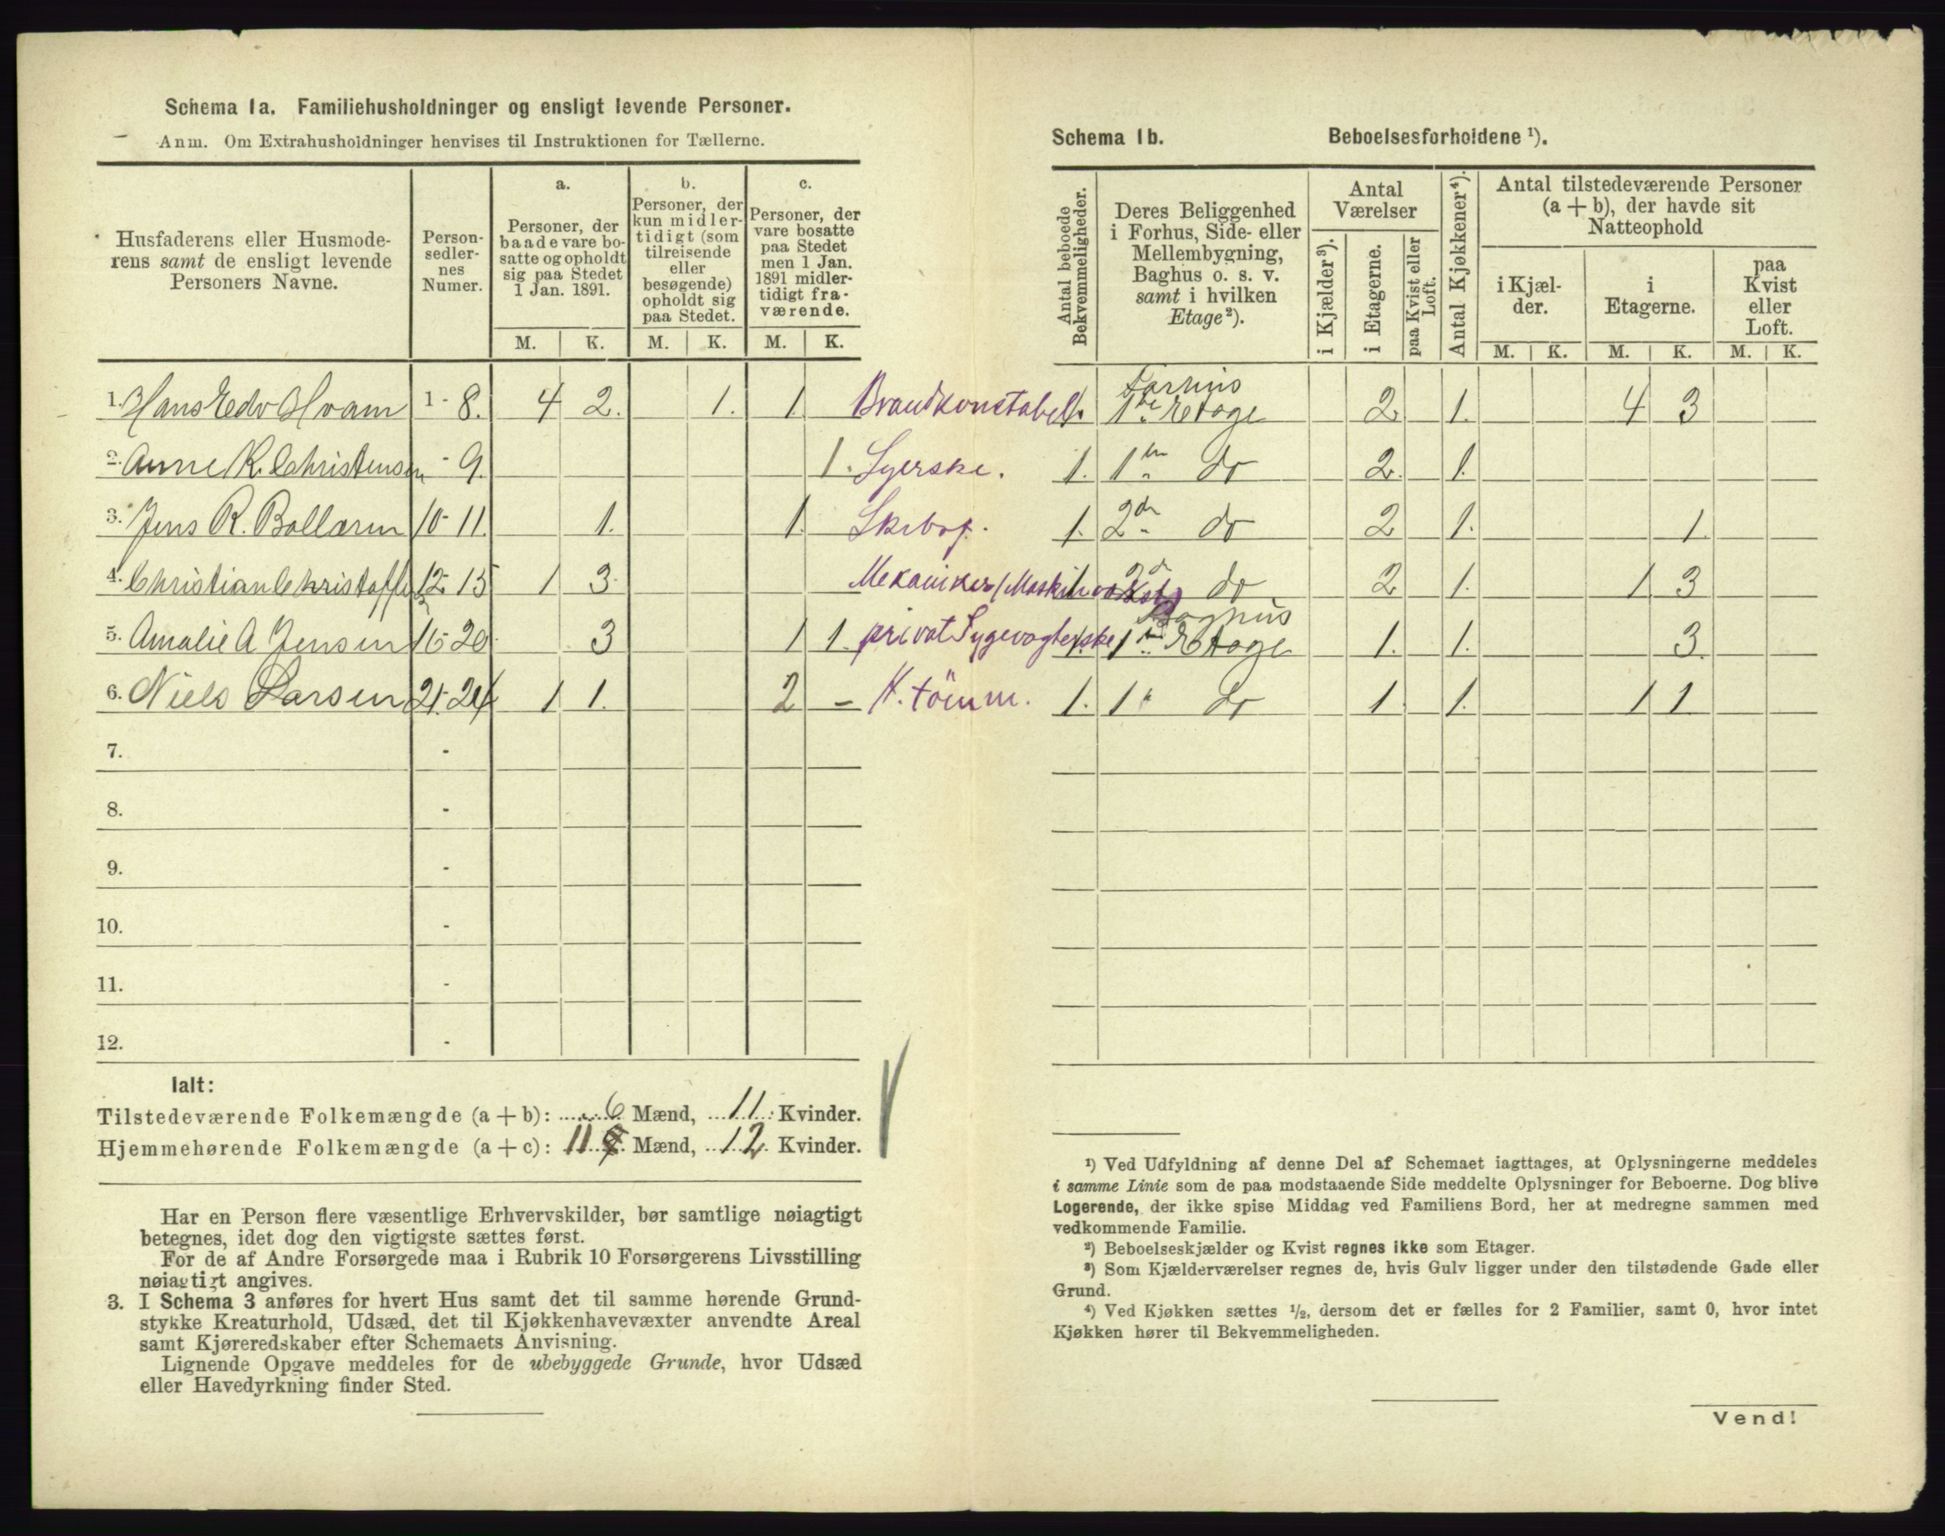 Schema 1a. Familiehusholdninger og ensligt levende Personer.
Anm. Om Extrahusholdninger henvises til Instruktionen for Tællerne.
Husfaderens eller Husmode-
rens samt de ensligt levende
Personers Navne.
Person-
sedler-
nes
Numer.
a.
Personer, der
baade vare bo-
satte og opholdt
sig paa Stedet
1 Jan. 1891.
b.
Personer, der
kun midler-
tidigt (som
tilreisende
eller
besøgende)
opholdt sig
paa Stedet.
c.
Personer, der
vare bosatte
paa Stedet
men 1 Jan.
1891 midler-
tidigt fra-
værende.
M. K. M. K. M. K.
1. Hans Edv Hvam 1 - 8. 4 2. 1. 1 Brandkonstabel
2. Anne K. Christensen - 9. 1. Syerske.
3. Jens R. Ballarin 10 - 11. 1. 1.
4. Christian Christoffs 12 - 15 1 3. Mekaniker
5. Amalie A Jensen 16 - 20 3 1 1. privat Sygevogterske
6. Niels Larsen 21 - 24 1 1. 2 - K. tömm.
7. -
8. -
9. -
10. -
11. -
12. -
Ialt:
Tilstedeværende Folkemængde (a + b): 6 Mænd, 11 Kvinder.
Hjemmehørende Folkemængde (a + c): 11 Mænd, 12 Kvinder.
Har en Person flere væsentlige Erhvervskilder, bør samtlige nøiagtigt
betegnes, idet dog den vigtigste sættes først.
For de af Andre Forsørgede maa i Rubrik 10 Forsørgerens Livsstilling
nøiagtigt angives.
3. I Schema 3 anføres for hvert Hus samt det til samme hørende Grund-
stykke Kreaturhold, Udsæd, det til Kjøkkenhavevæxter anvendte Areal
samt Kjøreredskaber efter Schemaets Anvisning.
Lignende Opgave meddeles for de ubebyggede Grunde, hvor Udsæd
eller Havedyrkning finder Sted.
Schema 1b. Beboelsesforholdene ¹).
Antal beboede
Bekvemmeligheder.
Deres Beliggenhed
i Forhus, Side- eller
Mellembygning,
Baghus o. s. v.
samt i hvilken
Etage²).
Antal
Værelser
i Kjælder³).
i Etagerne.
paa Kvist eller
Loft.
Antal Kjøkkener⁴).
Antal tilstedeværende Personer
(a + b), der havde sit
Natteophold
i Kjæl-
der.
i
Etagerne.
paa
Kvist
eller
Loft.
M. K. M. K. M. K.
Forhus
1. 1ste Etage 2 1. 4 3
1. 1ste do 2. 1.
1. 2den do 2 1. 1.
1 2d do 2 1. 1 3
Baghus
1. 1ste Etage 1. 1. 3.
1. 1 do 1 1. 1 1
¹) Ved Udfyldning af denne Del af Schemaet iagttages, at Oplysningerne meddeles
i samme Linie som de paa modstaaende Side meddelte Oplysninger for Beboerne. Dog blive
Logerende, der ikke spise Middag ved Familiens Bord, her at medregne sammen med
vedkommende Familie.
²) Beboelseskjælder og Kvist regnes ikke som Etager.
³) Som Kjælderværelser regnes de, hvis Gulv ligger under den tilstødende Gade eller
Grund.
⁴) Ved Kjøkken sættes ½, dersom det er fælles for 2 Familier, samt 0, hvor intet
Kjøkken hører til Bekvemmeligheden.
Vend!